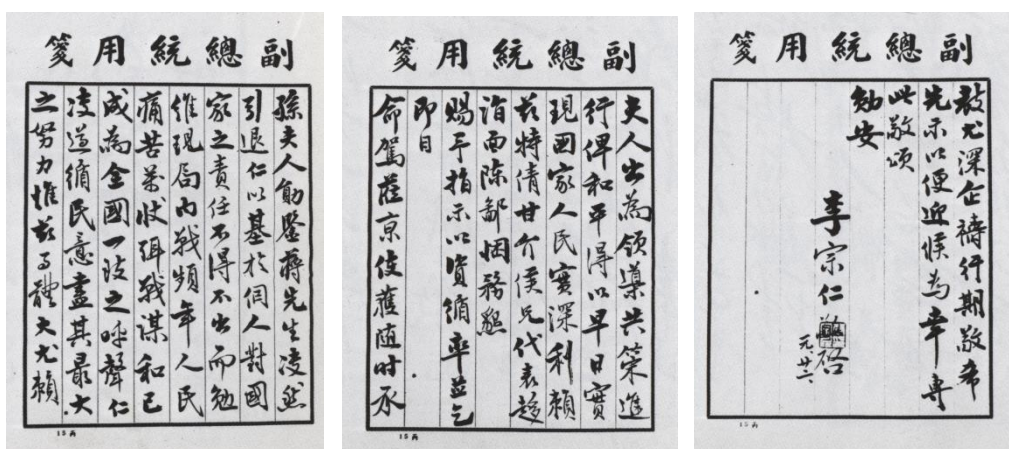 副總統用箋
孫夫人勛鑒蔣先生決然
引退仁以基於個人對國
家之責任不得不出而勉
維現局內戰頻年人民
痛苦萬狀弭戰謀和已
成為全國一致之呼聲仁
決遵循民意盡其最大
之努力惟茲事體大尤賴
副總統用箋
夫人出為領導共策進
行俾和平得以早日實
現國家人民實深利賴
茲特倩甘介侯兄代表趨
詣面陳鄙悃務懇
賜予指示以資循率並乞
即日
命駕蒞京俾獲隨時承
副總統用箋
教尤深企禱行期敬希
先示以便迎候為幸專
此敬頌
勛安
李宗仁 啓
元廿六